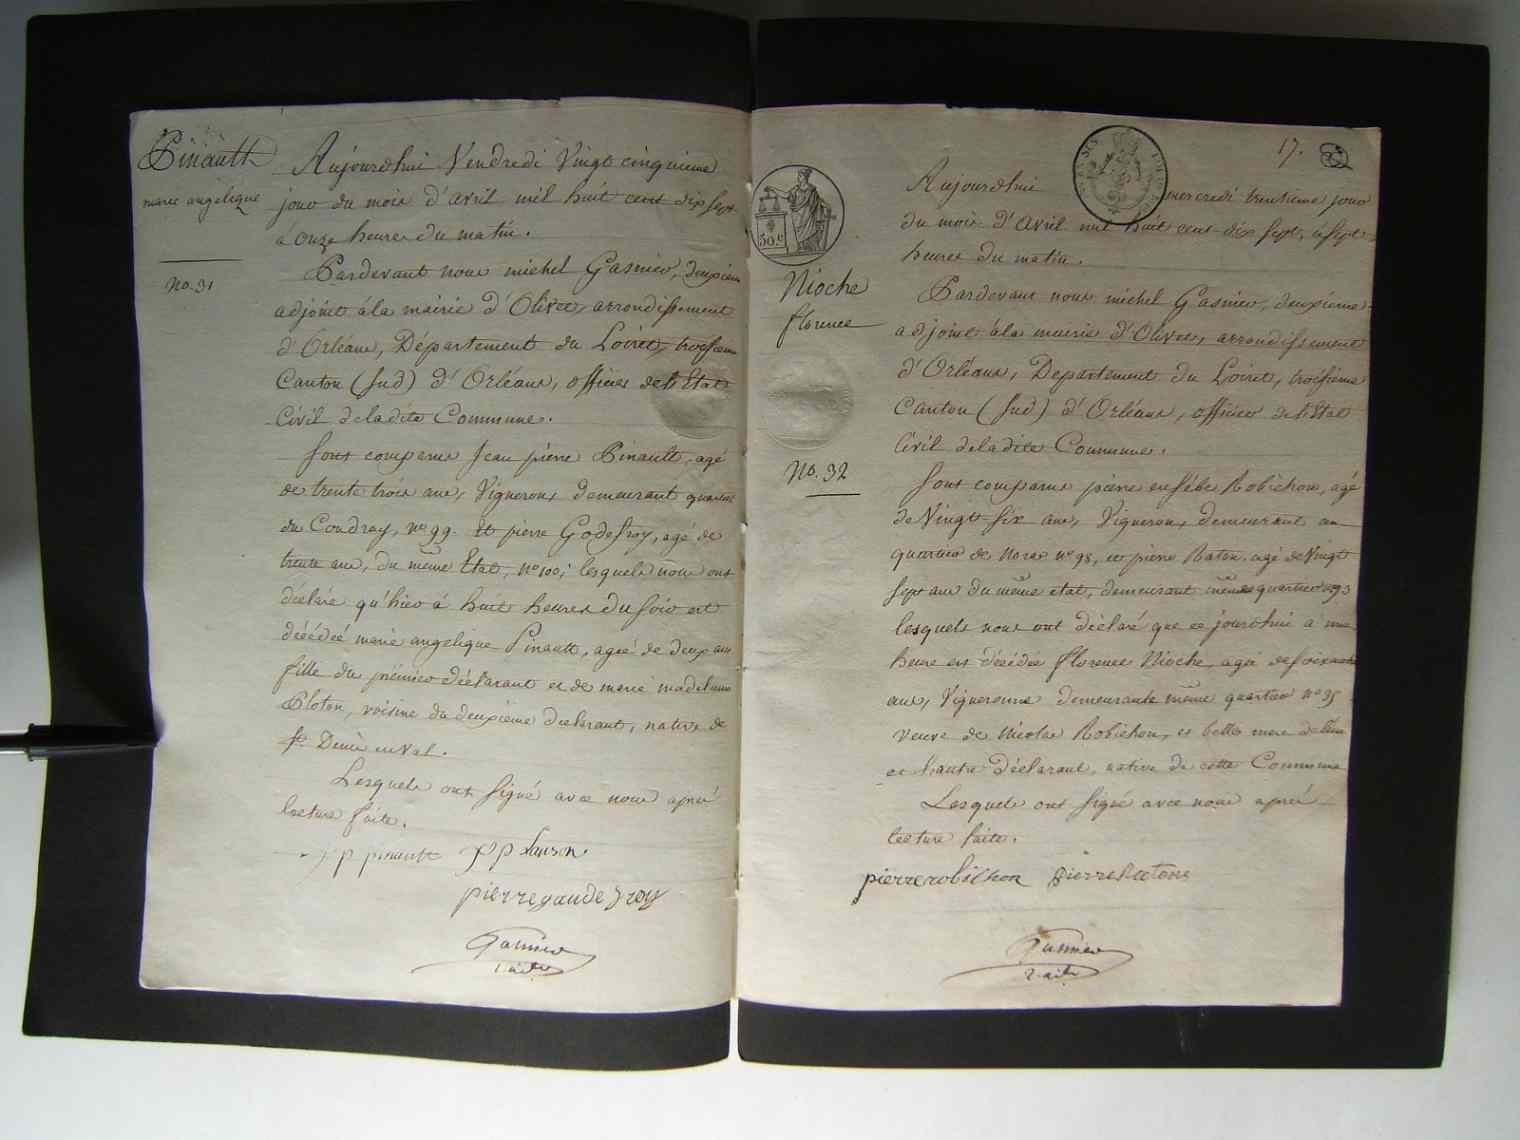 Pinault
marie angelique
No. 31
Aujourdhui Vendredi Vingt cinquieme
jour du mois d'avril mil huit cent dix sept
à onze heures du matin.
Pardevant nous michel Gasnier, deuxieme
adjoint àla mairie d'Olivet, arrondissement
d'Orléans, Département du Loiret, troisieme
Canton (sud) d'Orléans, officier de l'Etat
Civil deladite Commune.
Sont comparus Jean pierre Pinault, agé
de trente trois ans, Vigneron, demeurant quartier
du Coudray, no 99. Et pierre Godefroy, agé de
trente ans, du même Etat, no 100; lesquels nous ont
déclaré qu'hier à huit heures du soir est
décédée marie angelique Pinault, agée de deux ans
fille du prémier déclarant et de marie madelaine
Ploton, voisine du deuxieme declarant, native de
St. Denis en Val.
Lesquels ont signé avec nous aprés
lecture faite.
pp pinault pp sanson
pierre gaudefroy
Gasnier
17.
30 c
Nioche
florence
No. 32
Aujourdhui mercredi trentieme jour
du mois d'avril mil huit cent dix sept, à sept
heures du matin.
Pardevant nous michel Gasnier, deuxieme
adjoint àla mairie d'Olivet, arrondissement
d'Orléans, Departement du Loiret, troisieme
Canton (sud) d'Orléans, officier de l'Etat
Civil deladite Commune.
Sont comparus pierre eusébe Robichon, agé
de Vingt six ans, Vigneron, demeurant au
quartier de no 98, et pierre Raton, agé de Vingt
sept ans du même etat, demeurant même quartier no 93
lesquels nous ont déclaré que ce jourdhui à une
heure est décédée florence Nioche, agée de soixante
ans, Vigneronne demeurante même quartier no 95
veuve de Nicolas Robichon, et belle mere de l'un
et l'autre déclarant, native de cette Commune
Lesquels ont signé avec nous aprés
lecture faite.
pierre robichon pierre Ratons
Gasnier